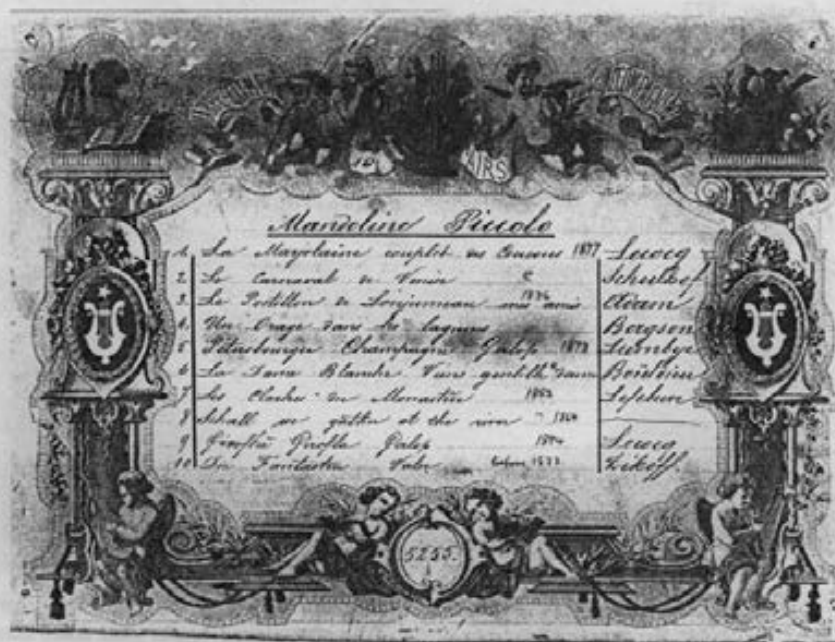 10 AIRS
Mandoline Piccolo
1. La Marjolaine couplet des 1877 Lecocq
2. Le Carnaval de Venise Schulhof
3. Le Postillon de Lonjumeau mes amis 1836 Adam
4. Un Orage dans les lagunes Bergson
5 Petersburger Champagne Galop Lumbye
6 La Dame Blanche Viens gentille dame Boieldieu
7 Les Cloches du Monastère
8 Schall we gather at the river 1864
9 Giroflé Girofla Galop 1874 Lecocq
10 Fantasca Valse Zikoff.
5255.